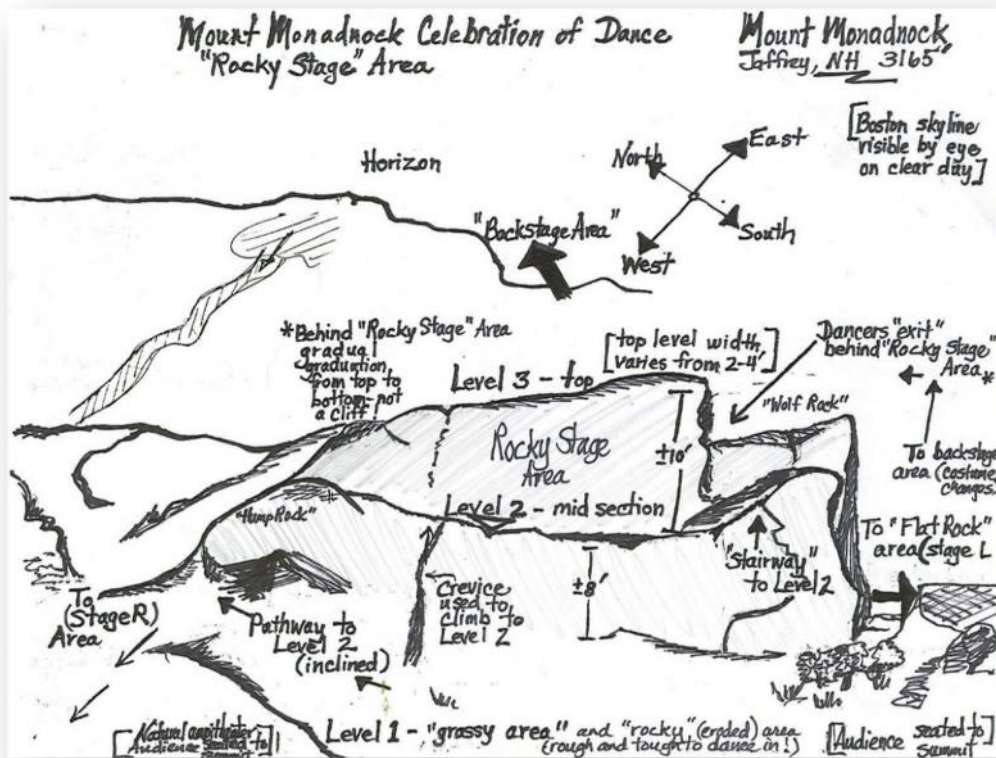 Mount Monadnock Celebration of Dance
"Rocky Stage" Area
Mount Monadnock
Jaffrey, NH 3165'
[Boston skyline
visible by eye
on clear day]
Horizon
North
East
South
West
"Backstage Area"
*Behind "Rocky Stage" Area
gradual
graduation
from top to
bottom-not
a cliff!
[top level width
varies from 2-4']
Dancers "exit"
behind "Rocky Stage"
Area *
Level 3 - top
"Wolf Rock"
Rocky Stage
Area
±10'
To backstage
area (costume
changes.
Level 2 - mid section
"Hump Rock"
To "Flat Rock"
area (stage L
"Stairway"
to Level 2
±8'
Crevice
used to
climb to
Level 2
To
(Stage R)
Area
Pathway to
Level 2
(inclined)
[Natural
Audience seated to
Level 1 - "grassy area" and "rocky" (eroded) area
(rough and tough to dance in!)
[Audience seated to
summit